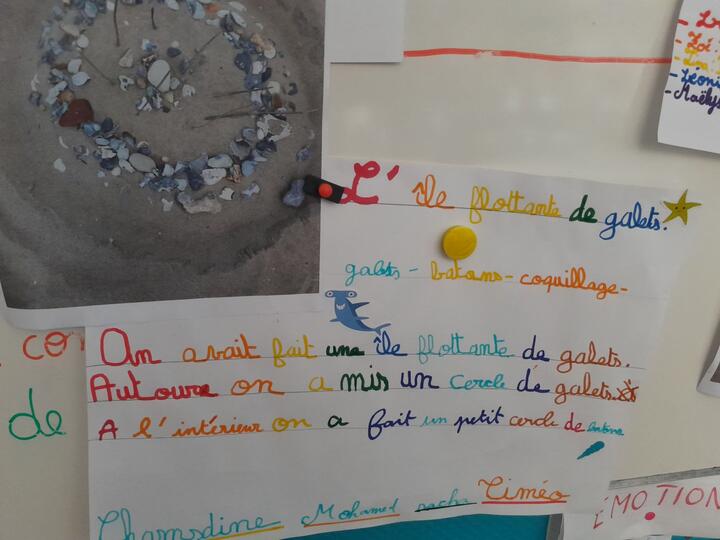 L' île flottante de galets.
galets - batons - coquillage -
On avait fait une île flottante de galets.
Autoure on a mis un cercle de galets.
A l'intérieur on a fait un petit cercle de batons
Chamsdine Mohamed sacha Timéo
co
de
- Zoé
- Léoni
- Maëlys
ÉMOTION